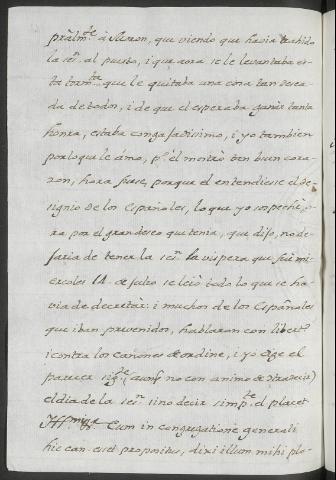 prâlmte. â Suron, que viendo que havia trahido
la ses.n al puesto, i que aora se le levantaba es-
ta torm.ta que le quitaba una cosa tan desea-
da de todos, i de que el esperaba ganar tanta
honra, estaba congojadisimo, i yo tambien
por lo que le amo, p.r él mostrò ten buen cora-
zon, hora fuese, porque el entendiese el de-
signio de los Españoles, lo que yo sospeche, o
ra por el gran deseo que tenia, que dijo, no de-
jaria de tener la ses.n la vispera que fue mi-
ercoles 14 de Julio se leiò todo lo que se ha-
via de decretàr: i muchos de los Españoles
que iban prevenidos, hablaron con libert.d
i contra los cañones de ordine, i yo dije el
parecer sig.te (aunq. no con animo de
el dia de la ses.n sino decir simp.te el placet
Illmi. Cum in congregatione generali
hic canones propositus, dixi illum mihi pla-